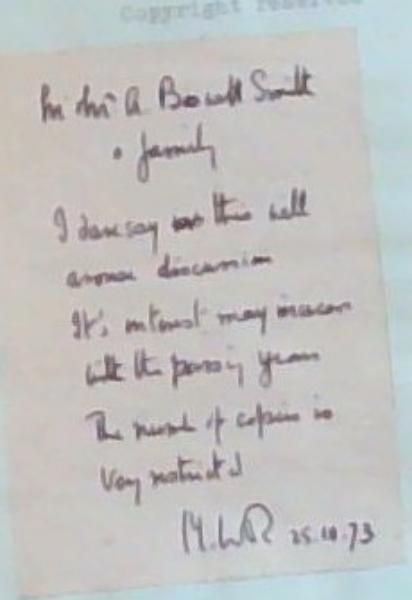 Copyright reserved
A Bowell Smith
& family
I daresay this will
arouse discussion
It's interest may increase
with the passing years
The number of copies is
Very restricted
25.10.73